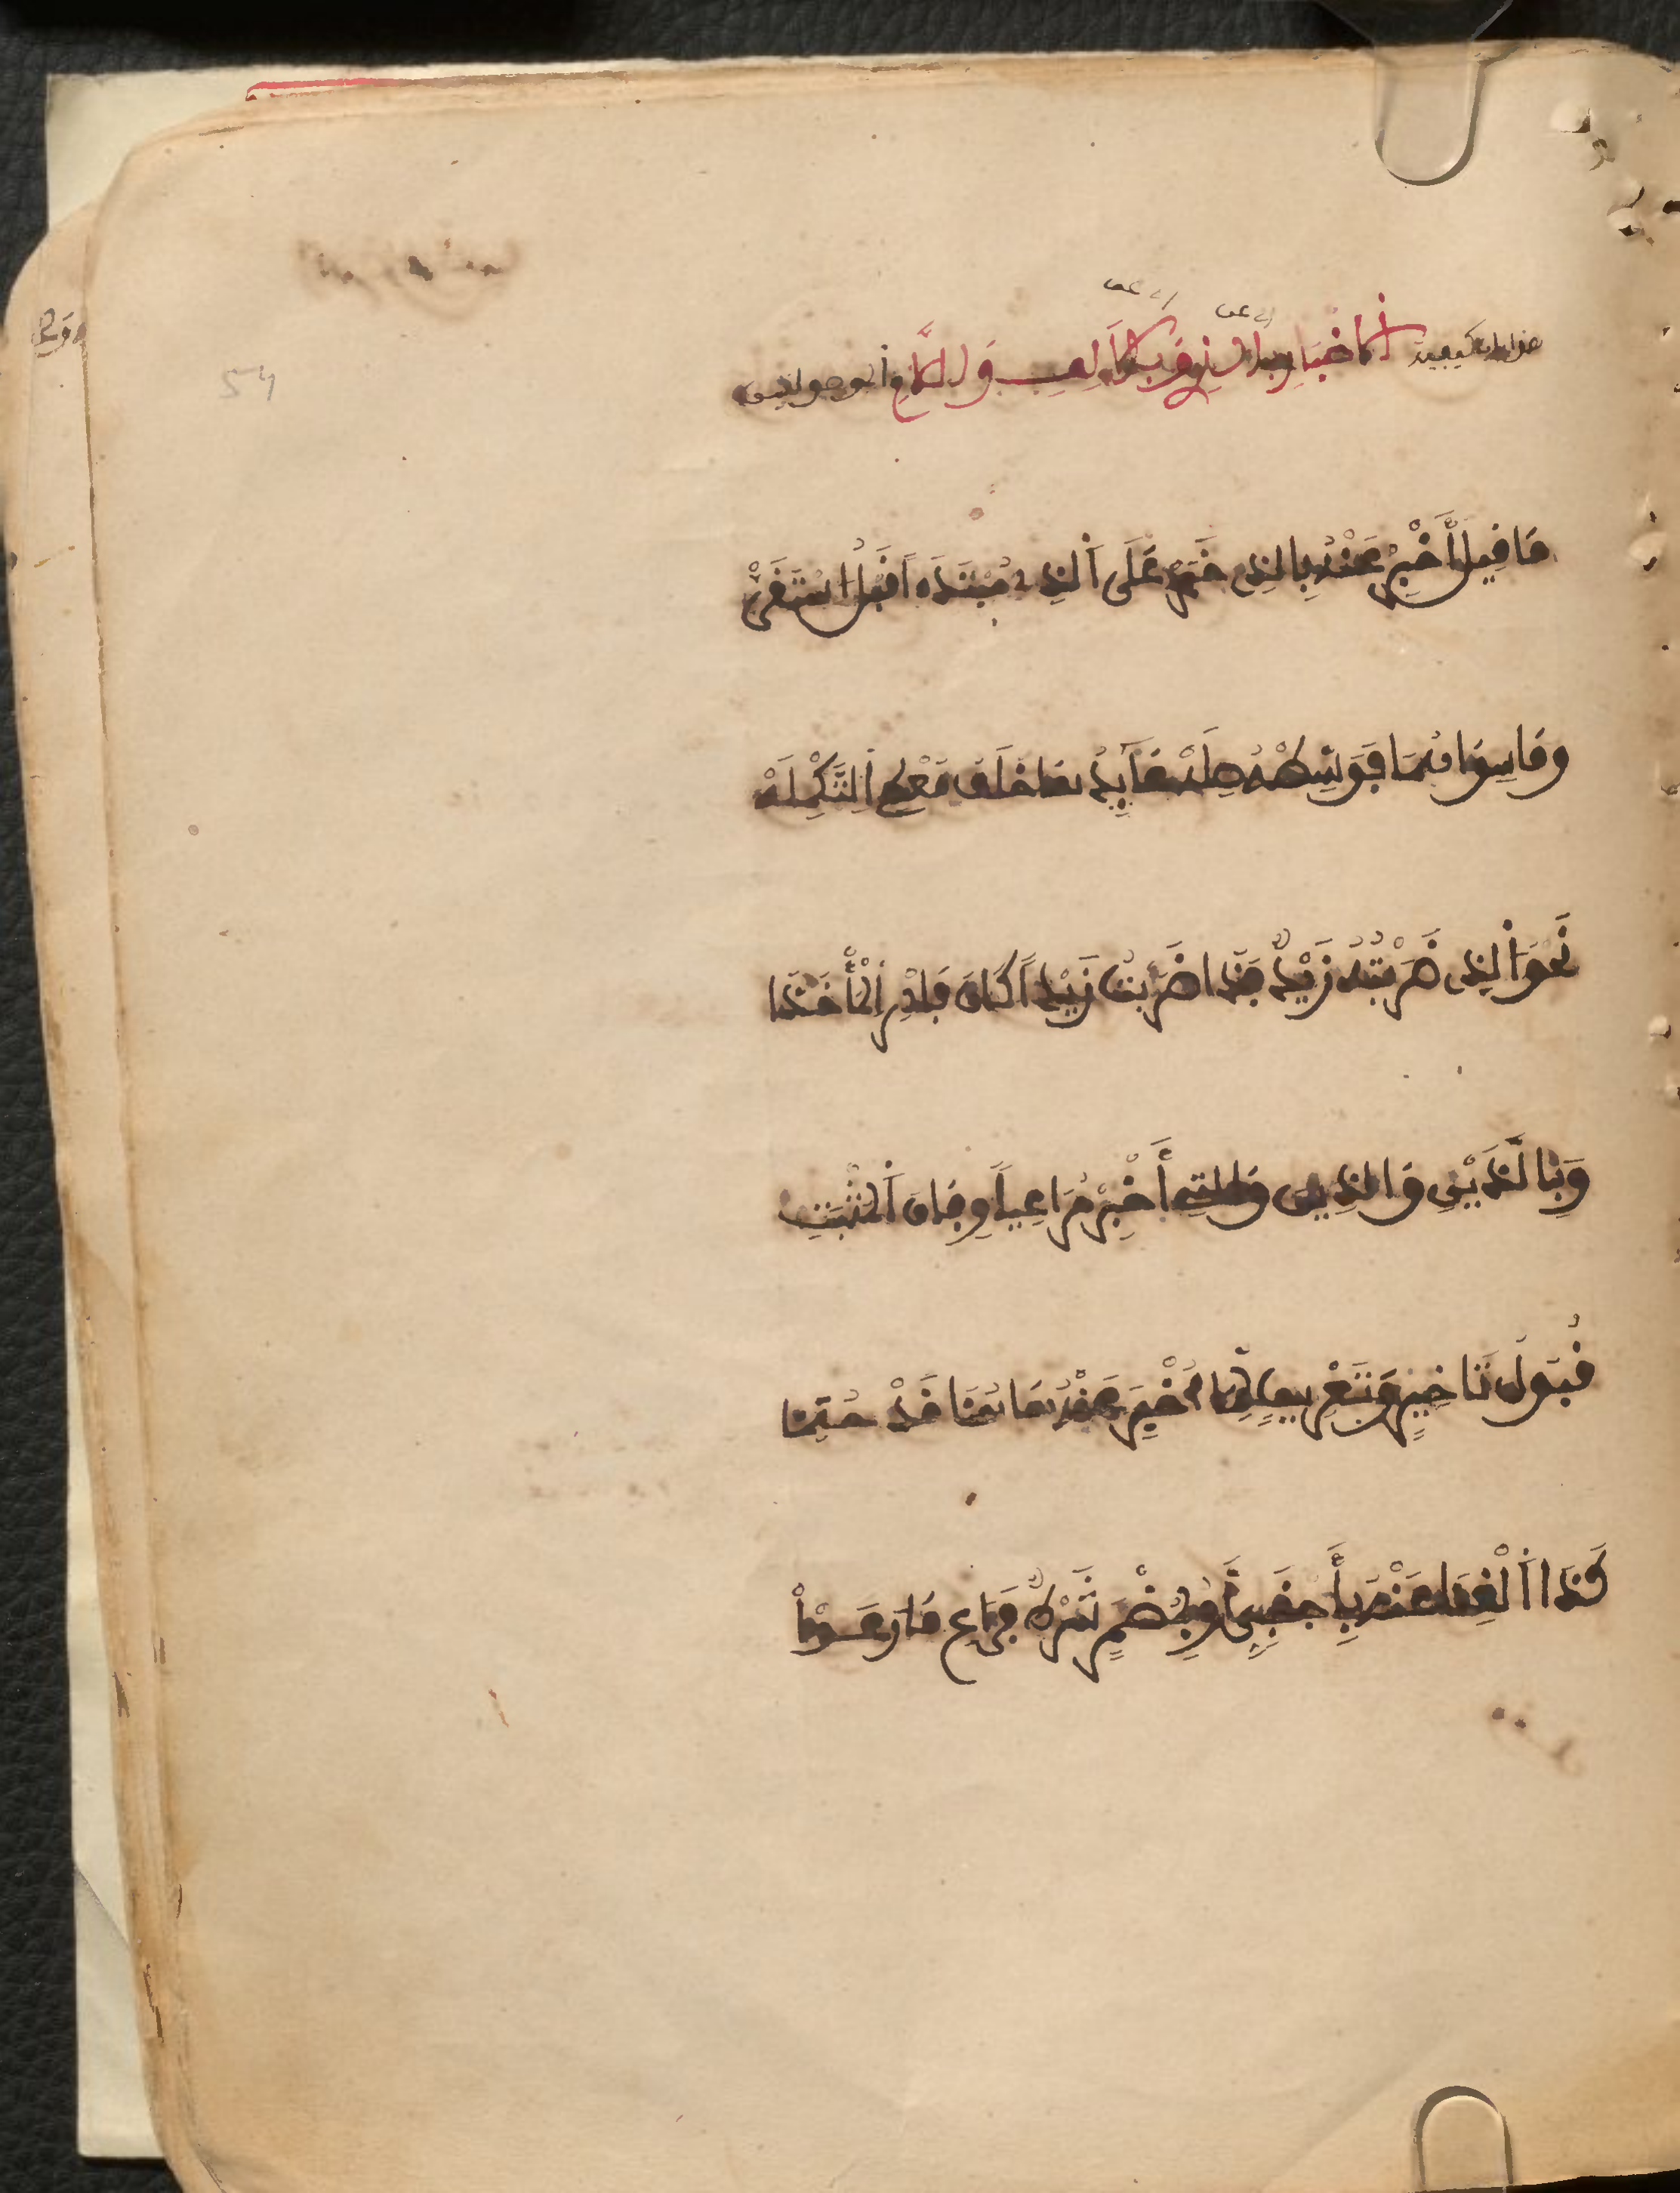 أي عن أي عن
هذا باب كيفية الاخبار بالذي وبالألف واللام
مَا قِيلَ أَخْبِرْ عَنْهُ بِالذِي خَبَرْ عَلَى ألذِي مُبْتَدَءاً قَبْلُ اسْتَقَرْ
وَمَا سِوَاهُمَا فَوَسِّطْهُ صِلَهْ عَآئِدُهَا خَلَفُ مُعْطِي اِلتَّكْمِلَهْ
نَحْوَ ألذِي ضَرَبْتُهُ زَيْدٌ فَذَا ضَرَبْتُ زَيْداً كَانَ فَادْرِ اِلْمَأْخَذَا
وَبِالَّذَيْنِ وَالذِينَ وَالتِي أَخْبِرْ مُرَاعِياً وِفَاقَ ألْمُثْبَتِ
قُبُولُ تَاخِيرٍ وَتَعْرِيفٍ لِمَا أُخْبِرَ عَنْهُ هَا هُنَا قَدْ حُتِمَا
كَذَا اَلْغِنَى عَنْهُ بِأَجْنَبِيٍّ أَوْ بِمُضْمَرٍ شَرْطٌ فَرَاعِ مَا رَعَوْاْ
54